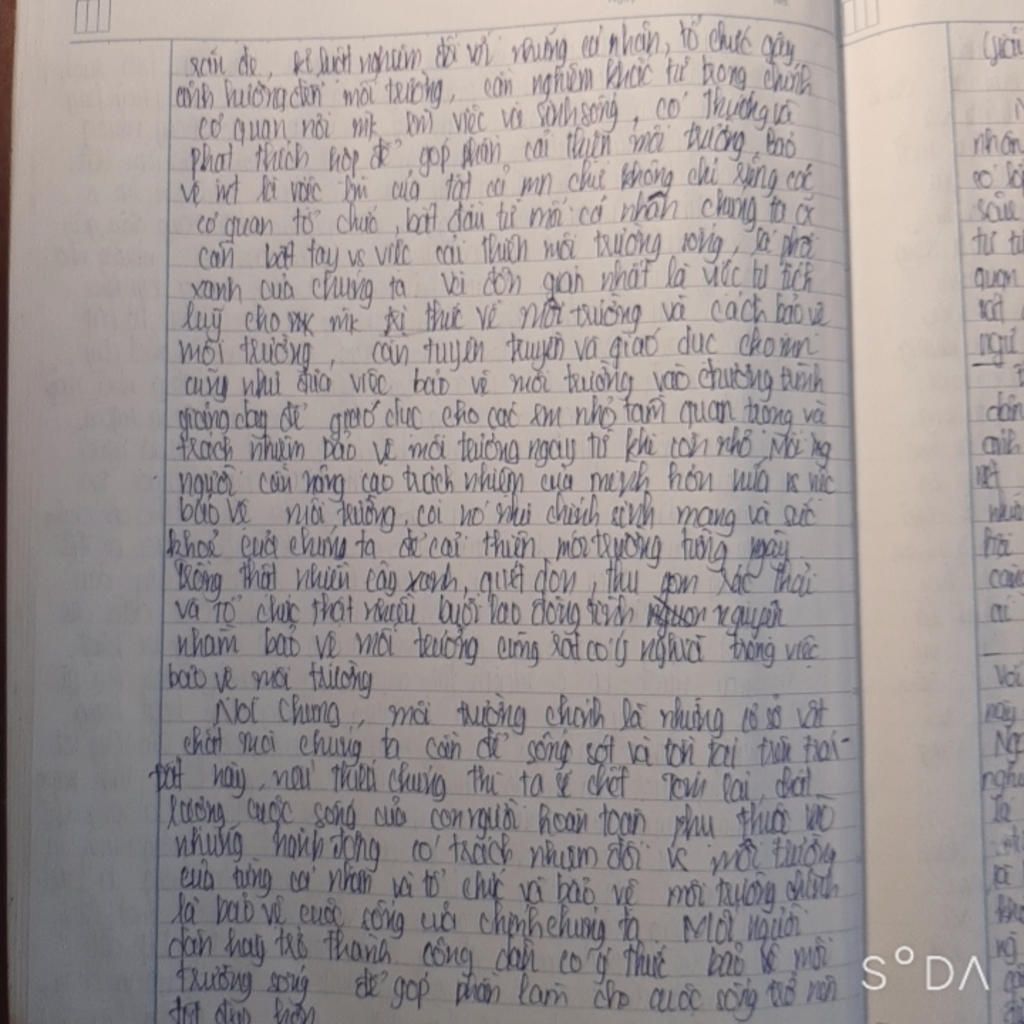 răn đe, kỉ luật nghiêm đối với những cá nhân, tổ chức gây
ảnh hưởng đến môi trường, cần nghiêm khắc từ trong chính
cơ quan nơi mk làm việc và sinh sống, có thưởng và
phạt thích hợp để góp phần cải thiện môi trường. Bảo
vệ mt là việc làm của tất cả mn chứ không chỉ riêng các
cơ quan tổ chức, bắt đầu từ mỗi cá nhân chúng ta
cần bắt tay vs việc cải thiện môi trường sống, lá phổi
xanh của chúng ta. Và đơn giản nhất là việc tự tích
luỹ cho mk tri thức về môi trường và cách bảo vệ
môi trường, cần tuyên truyền và giáo dục cho mn
cũng như đưa việc bảo vệ môi trường vào chương trình
giảng dạy để giáo dục cho các em nhỏ tầm quan trọng và
trách nhiệm bảo vệ môi trường ngay từ khi còn nhỏ. Mỗi
người cần nâng cao trách nhiệm của mình hơn nữa vs việc
bảo vệ môi trường, coi nó như chính sinh mạng và sức
khoẻ của chúng ta để cải thiện môi trường từng ngày.
Trồng thật nhiều cây xanh, quét dọn, thu gom rác thải
và tổ chức thật nhiều buổi lao động tình nguyện
nhằm bảo vệ môi trường cũng rất có ý nghĩa trong việc
bảo vệ môi trường
Nói chung, môi trường chính là những cơ sở vật
chất mà chúng ta cần để sống sót và tồn tại trên trái
đất này, nếu thiếu chúng thì ta sẽ chết. Tóm lại, chất
lượng cuộc sống của con người hoàn toàn phụ thuộc vào
những hành động có trách nhiệm đối vs môi trường
của từng cá nhân và tổ chức và bảo vệ môi trường chính
là bảo vệ cuộc sống của chính chúng ta. Mỗi người
dân hãy trở thành công dân có ý thức bảo vệ môi
trường sống để góp phần làm cho cuộc sống trở nên
tốt đẹp hơn
SODA